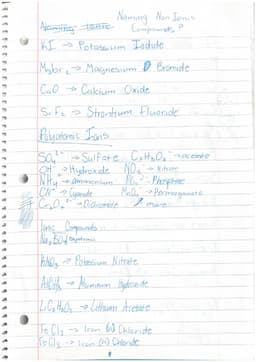 Naming Non Ionic
Naming Ionic Compounds?
KI → Potassium Iodide
MgBr₂ → Magnesium Bromide
CaO → Calcium Oxide
SrF₂ → Strontium Fluoride
Polyatomic Ions
SO₄²⁻ → Sulfate C₂H₃O₂⁻ → acetate
OH⁻ → Hydroxide NO₃⁻ → Nitrate
NH₄ → ammonium PO₄³⁻ → Phosphate
CN⁻ → Cyanide MnO₄⁻ → Permanganate
Cr₂O₇²⁻ → Dichromate more
Ionic Compounds
Na₂SO₄
KNO₃ → Potassium Nitrate
→ Aluminum Hydroxide
LiC₂H₃O₂ → Lithium Acetate
FeCl₂ → Iron (II) Chloride
FeCl₃ → Iron (III) Chloride